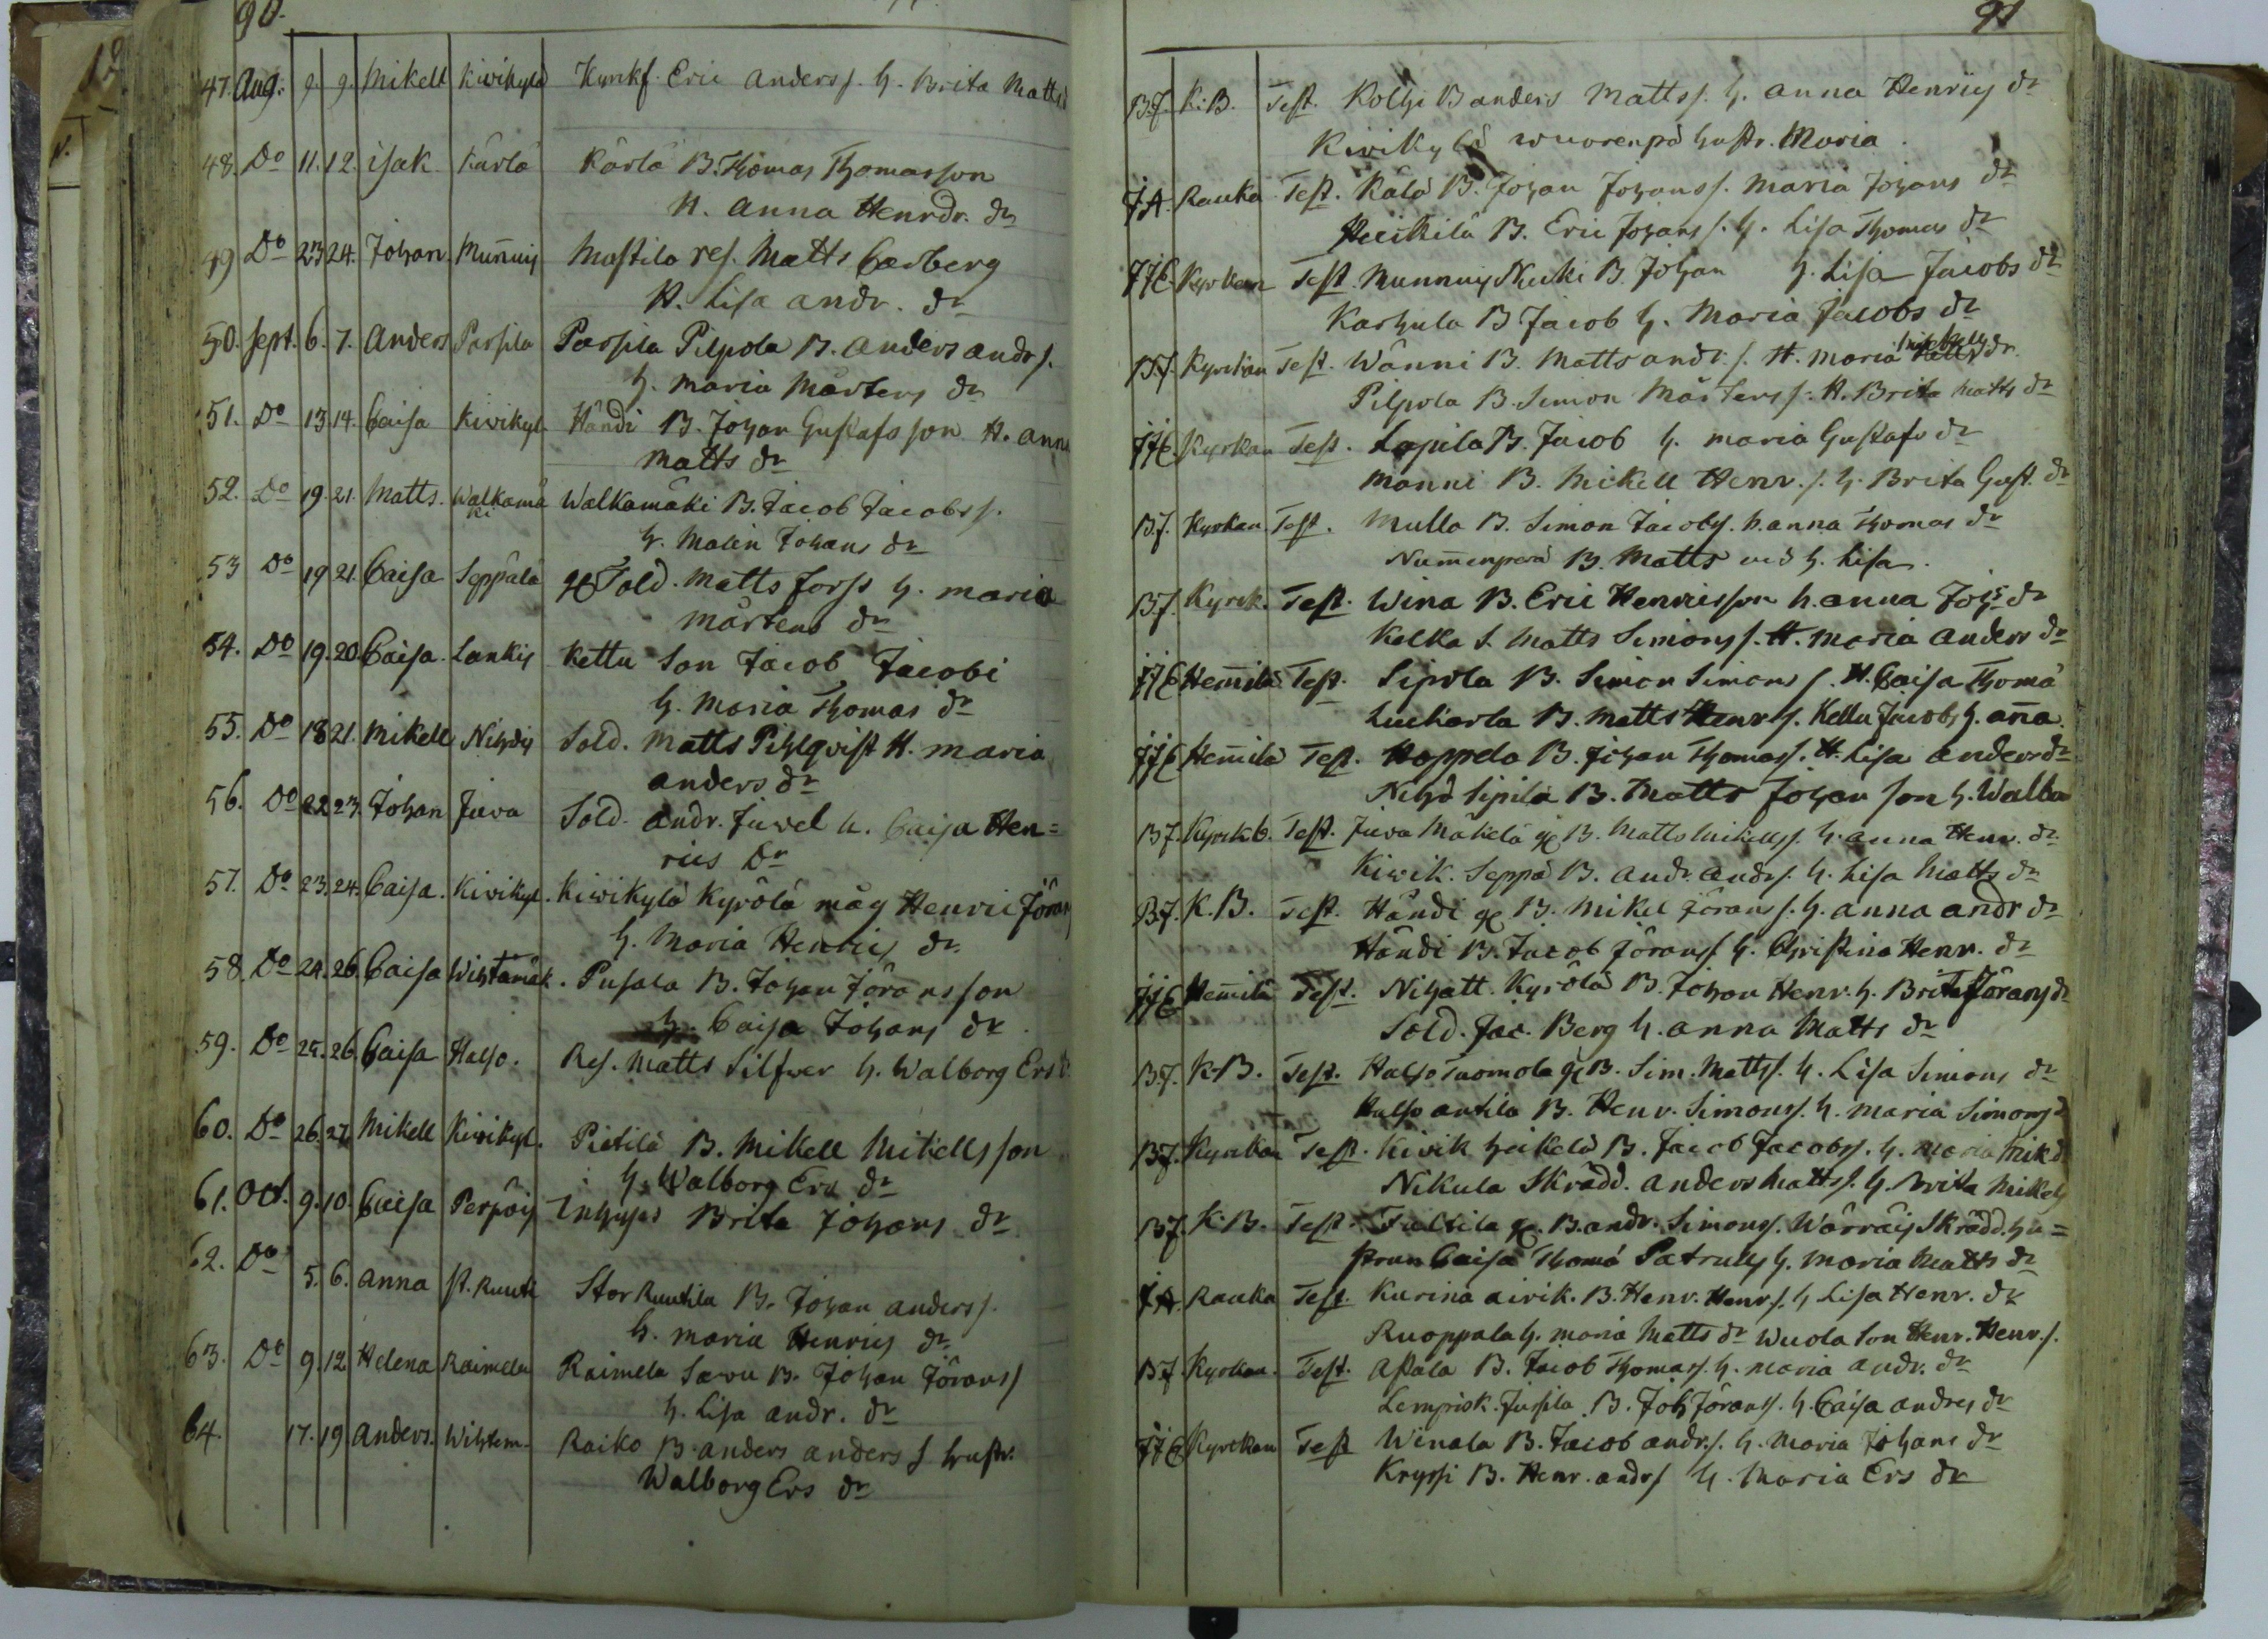 90.
47. Aug. 9. 9. Mikell Kivikylä Kyrckf. Eric Anders s. h. Brita Matts
48. Do 11. 12. Isak Kärlä Kärlä B. Thomas Thomasson
H. Anna Henr dr. dr
49 Do 23 24. Johan Mun̄uis Mastila res. Matts Carberg
H. Lisa andr. dr
50. Sept. 6. 7. Anders Parsila Parsila Pilpola B. Anders andr s.
h. Maria Mårtens dr
51. Do 13. 14. Caisa Kivikyl. Händi B. Johan Gustafsson H. Anna
Matts dr
52. Do 19. 21. Matts. Walkamäki Walkamäki B. Jacob Jacobs s.
h. Malin Johans dr
53 Do 19 21. Caisa Seppälä Sold. Matts Forss h. Maria
Mårtens dr
54. Do 19. 20. Caisa. Lankis Kettu Son Jacob Jacobi
h. Maria Thomas dr
55. Do 18 21. Mikell Nihdis Sold. Matts Pihlqvist H. Maria
anders dr
56. Do 22 23. Johan Juva Sold. Andr. Juvel h. Caisa Hen=
rics Dr
57. Do 23. 24. Caisa. Kivikyl. Kivikylä Kyrölä måg Henric Jöran
h. Maria Henrics dr
58. Do 24. 26. Caisa Wihtamäk. Pusala B. Johan Jöransson
h. Caisa Johans dr.
59. Do 25. 26. Caisa Halso. Res. Matts Silfwer h. Walborg Ers d
60. Do 26. 27. Mikell Kivikyl. Pietilä B. Mikell Mikellsson
h. Walborg Ers dr
61. Oct. 9. 10. Caisa Perpöis Inhyses Brita Johans dr
62. Do 5. 6. Anna St. Ruuti Stor Ruutila B. Johan anders s.
h. Maria Henrics dr
63. Do 9. 12. Helena Raimela Raimela Savu B. Johan Jörans s
h. Lisa andr. dr
64. 17. 19. Anders. Wihtem. Raiko B. Anders anders s hustr.
Walborg Ers dr
91
B.f. K.B. Test. Kolhi B anders Matts s. h. Anna Henrics dr
Kivikylä Wuorenpä hustr. Maria.
JA. Rauka Test. Kälä B. Johan Johans s. Maria Johans dr
Heikkilä B. Eric Johans s. h. Lisa Thomas dr
Kyrckan Test. Munnuis Neuki B. Johan h. Lisa Jacobs dr
Karhula B Jacob h. Maria Jacobs dr
B.f. Kyrckan Test. Wänni B. Matts andr. s. H. Maria Mickells dr.
Pilpola B. Simon Mårtens s. H. Brita Matts dr
Kyrkan Test. Lapila B. Jacob h. Maria Gustafs dr
Manni B. Mikell Henr. s. h. Brita Gust. dr
B.f. Kyrkan. Test. Mulla B. Simon Jacobs s. h. Anna Thomas dr
Num̄enperä B. Matts h. Lisa.
B.f. Kyrck. Test. Wina B. Eric Henricsson h. Anna Johs dr
Kelka S. Matts Simons s. H. Maria Anders dr
Hem̄ila Test. Sipola B. Simon Simons s. H. Caisa Thoma
B. Matts Henr s. Kellu Jacobs h. An̄a.
Hem̄ila Test. Hoppela B. Johan Thomas s. H. Lisa Anders dr
Nihd Sipilä B. Matts Johan son h. Walb
B.f. Kyrck b. Test. Juva Mäkelä B. Matts Mikells s. h. Anna Henr. dr
Kivik. Seppä B. Andr. andr s. h. Lisa Matts dr
B.f. K.B. Test. Händi B. Mikel Jörans s. h. Anna andr dr
Händi B. Jacob Jörans s. h. Christina Henr. dr
Hem̄ila Test. Nihatt. Kyrölä B. Johan Henr. h. Brita Jörans dr
Sold. Jac. Berg h. Anna Matts dr
B.f. K.B. Test. Halso Tuomola B. Sim. Matts s. h. Lisa Simons dr
Halso Antila B. Henr. Simons s. h. Maria Simons d
B.f. Kyrckan Test. Kivik heikelä B. Jacob Jacobs s. h. Maria Mik d
Nikula Skrädd. Anders Matts s. h. Brita Mikels
B.f. K.B. Test. B. andr. Simons s. Wärräis Skrädd. hu=
strun Caisa Thoma Patruls h. Maria Matts dr
JA. Rauka Test. Kurina Airik. B. Henr. Henr s. h Lisa Henr. dr
Ruoppala h. Maria Matts dr Wuola Son Henr. Henr. s.
B.f. Kyrkan. Test. Askala B. Jacob Thomas s. h. Maria andr. dr
Lempisk. Jussila B. Joh Jörans s. h. Caisa Andres dr
Kyrckan Test Winala B. Jacob andr. s. h. Maria Johans dr
Kryssi B. Henr. andr s h. Maria Ers dr